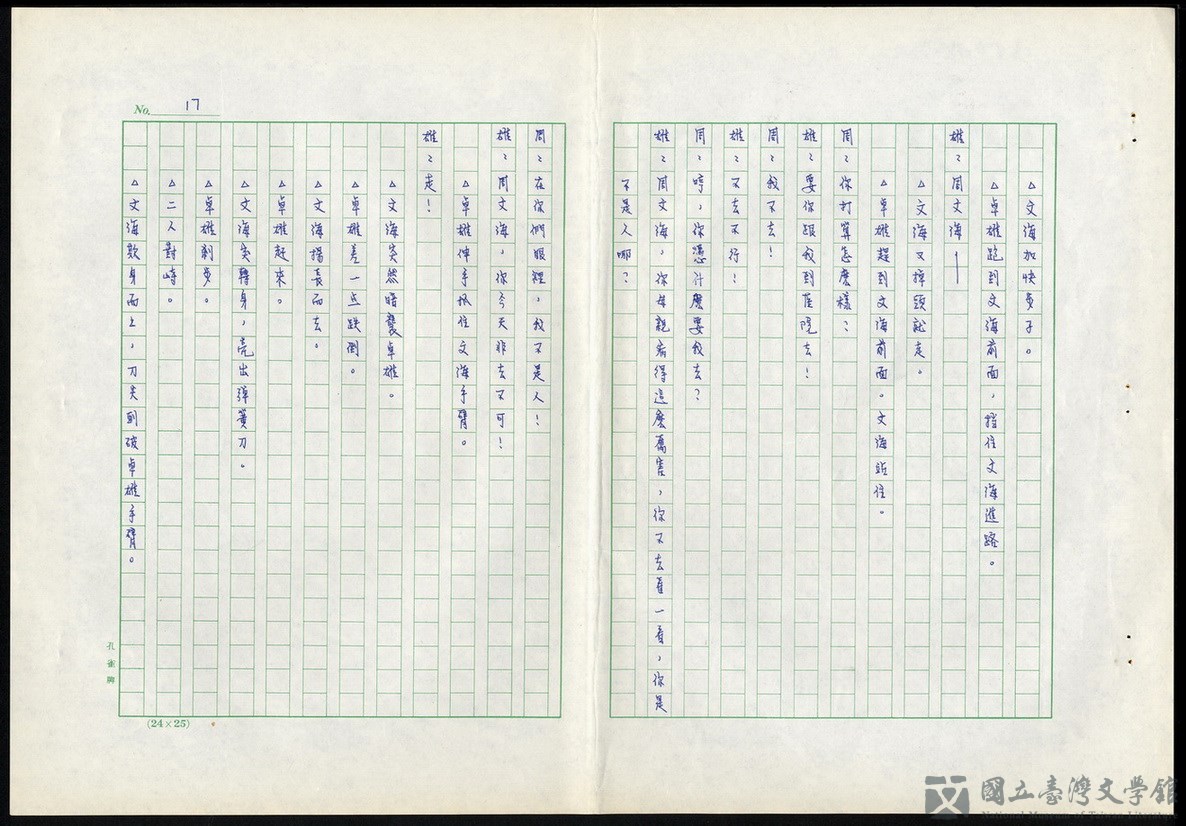 No. 17
△文海加快步子。
△卓雄跑到文海前面，擋住文海進路。
雄：周文海──
△文海又掉頭就走。
△卓雄趕到文海前面。文海站住。
周：你打算怎麼樣？
雄：要你跟我到醫院去！
周：我不去！
雄：不去不行！
周：哼，你憑什麼要我去？
雄：周文海，你母親病得這麼厲害，你不去看一看，你是
不是人哪？
周：在你們眼裡，我不是人！
雄：周文海，你今天非去不可！
△卓雄伸手抓住文海手臂。
雄：走！
△文海突然暗襲卓雄。
△卓雄差一点跌倒。
△文海揚長而去。
△卓雄赶來。
△文海突轉身，亮出彈簧刀。
△卓雄剎步。
△二人對峙。
△文海欺身而上，刀尖劃破卓雄手臂。
孔雀牌
(24×25)
國立臺灣文學館
National Museum of Taiwan Literature